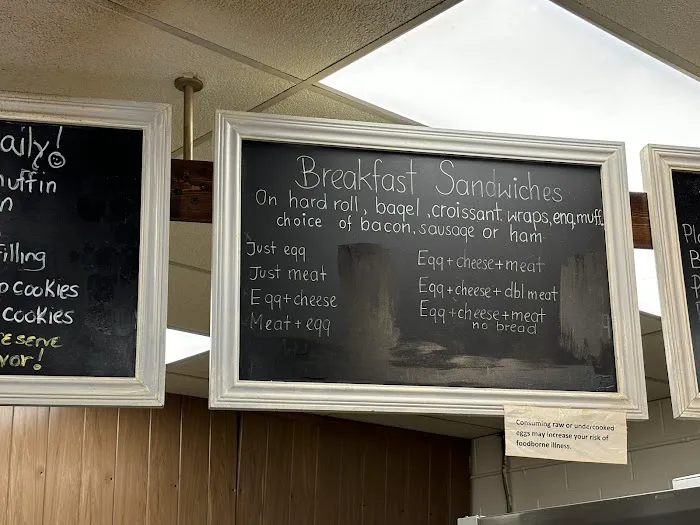 aily!
uffin
n
illing
o cookies
cookies
reserve
vor!
Breakfast Sandwiches
On hard roll, bagel, croissant, wraps, eng, muff,
choice of bacon, sausage or ham
Just egg
Just meat
Egg+cheese
Meat+egg
Egg+cheese+meat
Egg+cheese+dbl meat
Egg+cheese+meat
no bread
Consuming raw or undercooked
eggs may increase your risk of
foodborne illness.
Pl
B
P